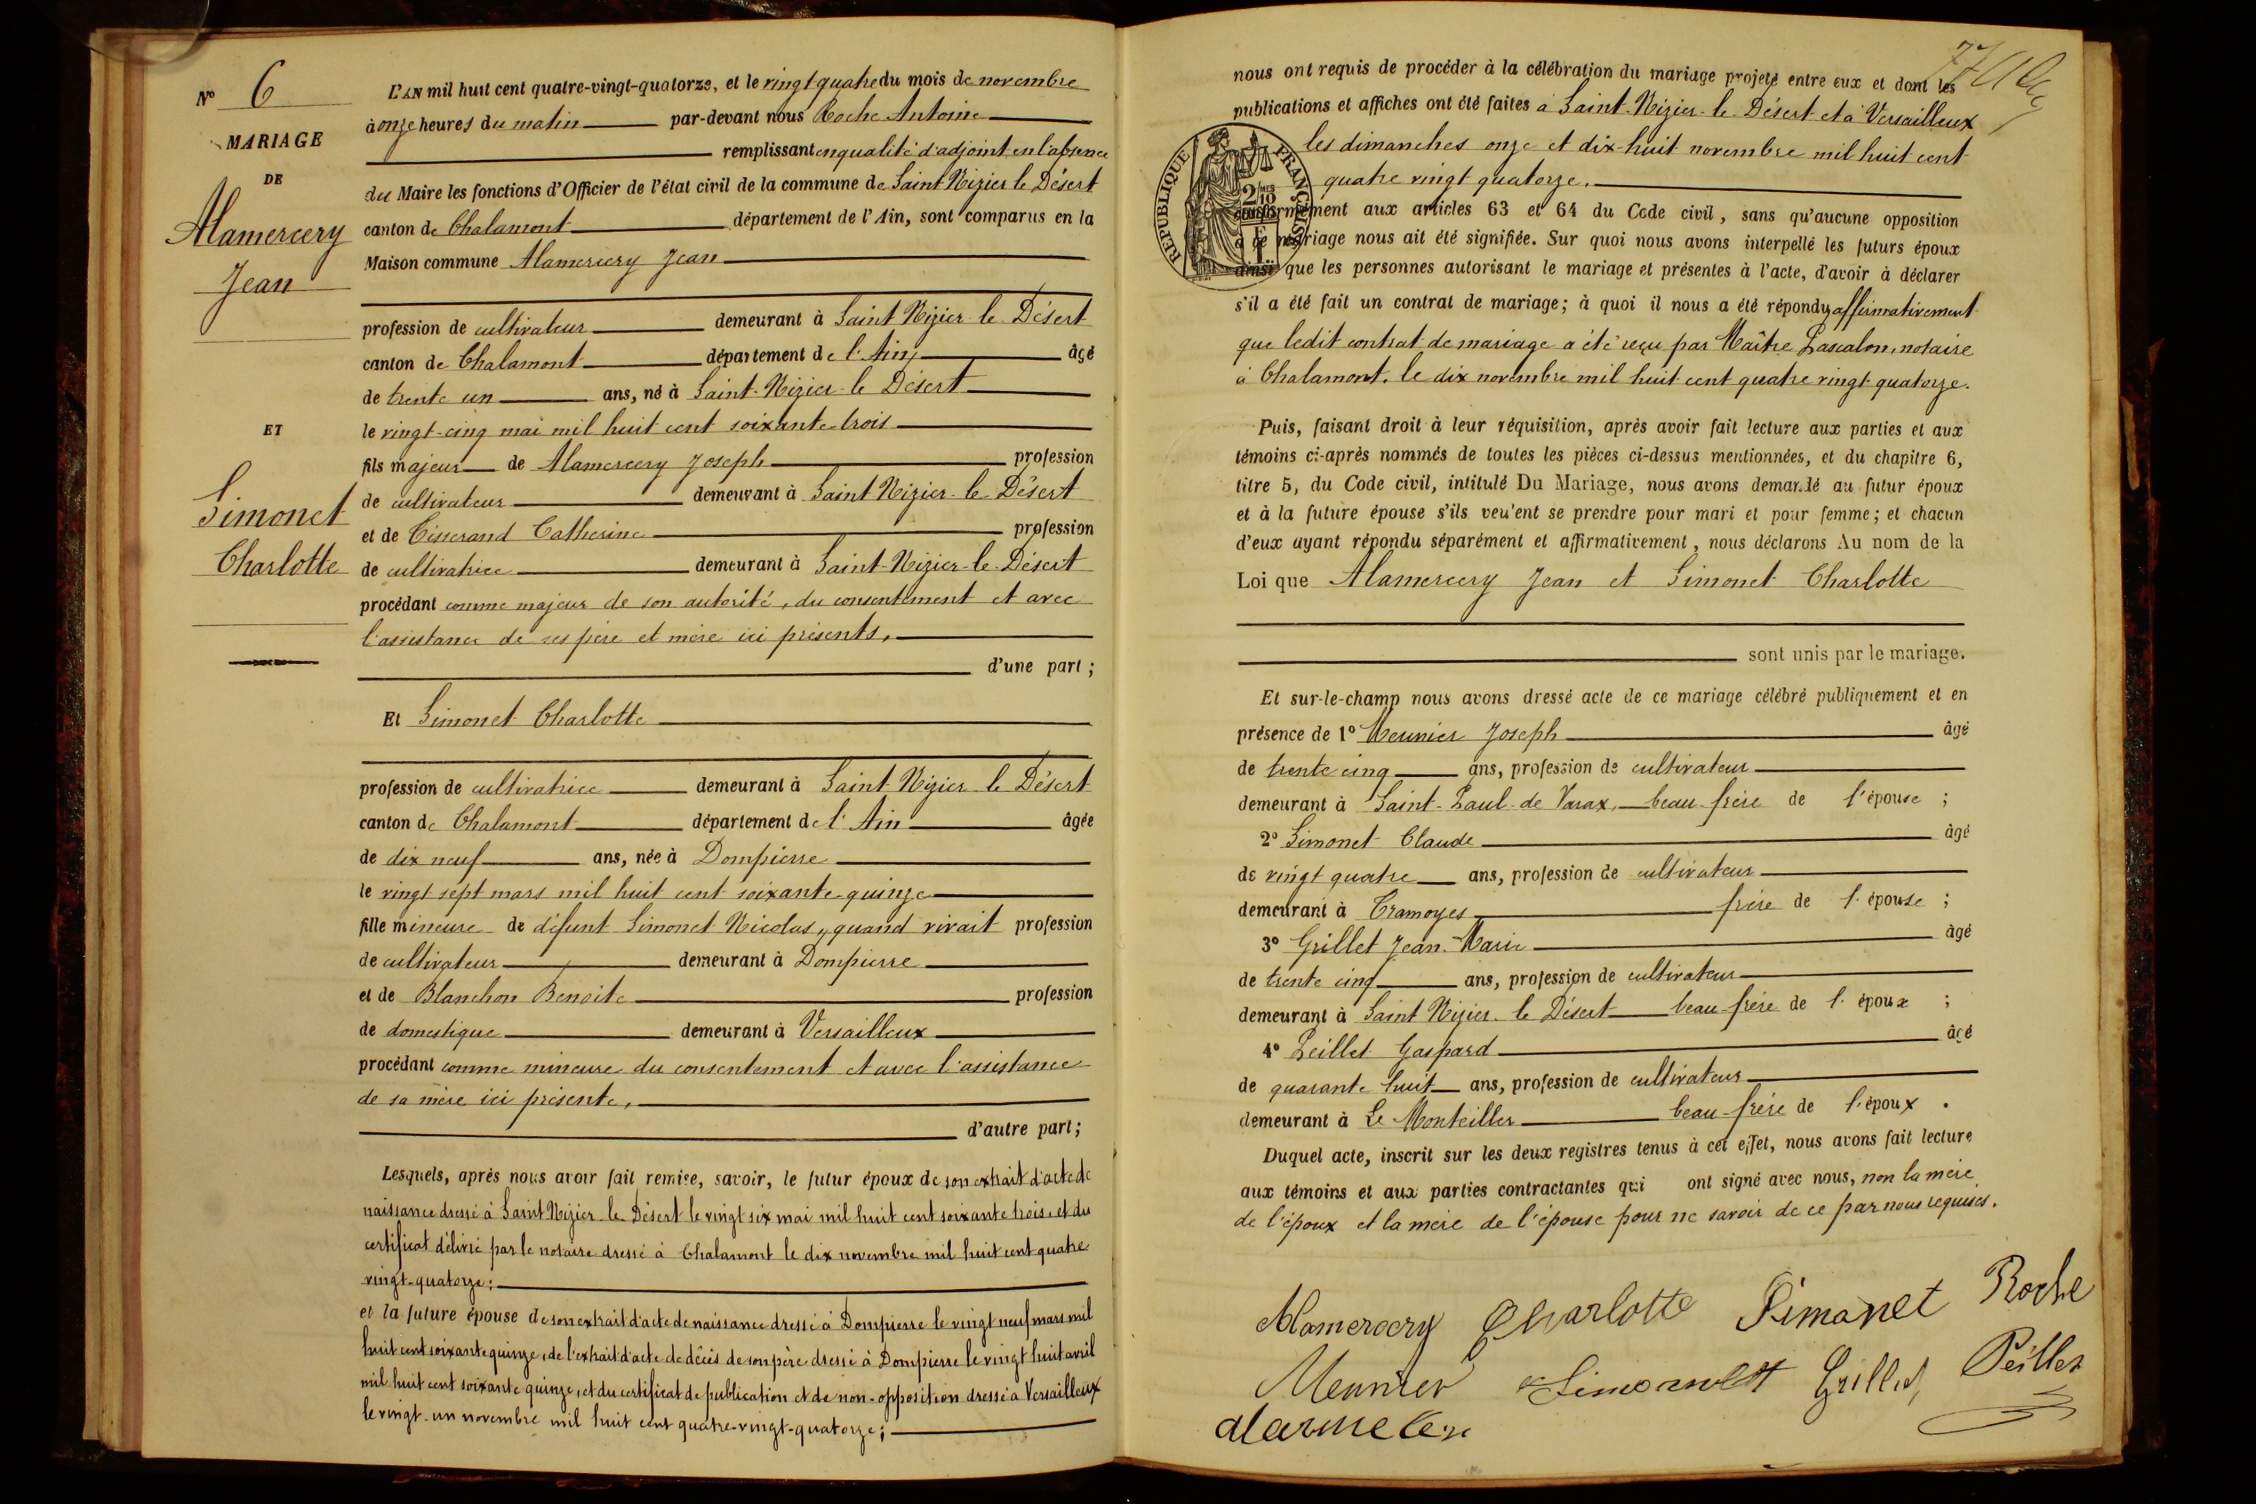 Nº 6
MARIAGE
DE
Alamercery
Jean
ET
Simonet
Charlotte
L'AN mil huit cent quatre-vingt-quatorze, et le vingt quatre du mois de novembre
à onze heures du matin par-devant nous Roche Antoine
remplissant en qualité d'adjoint en l'absence
du Maire les fonctions d'Officier de l'état civil de la commune de Saint Nizier le Désert
canton de Chalamont département de l'Ain, sont comparus en la
Maison commune Alamercery Jean
profession de cultivateur demeurant à Saint Nizier le Désert
canton de Chalamont département de l'Ain, âgé
de trente un ans, né à Saint-Nizier le Désert
le vingt-cinq mai mil huit cent soixante-trois
fils majeur de Alamercery Joseph profession
de cultivateur demeurant à Saint Nizier le Désert
et de Tisserand Catherine profession
de cultivatrice demeurant à Saint-Nizier-le-Désert
procédant comme majeur de son autorité, du consentement et avec
l'assistance de ses père et mère ici présents,
d'une part ;
Et Simonet Charlotte
profession de cultivatrice demeurant à Saint Nizier le Désert
canton de Chalamont département de l'Ain âgée
de dix neuf ans, née à Dompierre
le vingt sept mars mil huit cent soixante-quinze
fille mineure de défunt Simonet Nicolas, quand vivait profession
de cultivateur demeurant à Dompierre
et de Blanchon Benoite profession
de domestique demeurant à Versailleux
procédant comme mineure du consentement et avec l'assistance
de sa mère ici présente,
d'autre part ;
Lesquels, après nous avoir fait remise, savoir, le futur époux de son extrait d'acte de
naissance dressé à Saint Nizier le Désert le vingt six mai mil huit cent soixante trois, et du
certificat délivré par le notaire dressé à Chalamont le dix novembre mil huit cent quatre
vingt-quatorze ;
et la future épouse de son extrait d'acte de naissance dressé à Dompierre le vingt neuf mars mil
huit cent soixante quinze, de l'extrait d'acte de décès de son père dressé à Dompierre le vingt huit avril
mil huit cent soixante quinze, et du certificat de publication et de non-opposition dressé à Versailleux
le vingt-un novembre mil huit cent quatre-vingt-quatorze ;
nous ont requis de procéder à la célébration du mariage projeté entre eux et dont les
publications et affiches ont été faites à Saint-Nizier-le-Désert et à Versailleux
les dimanches onze et dix-huit novembre mil huit cent
quatre vingt quatorze.
RÉPUBLIQUE FRANÇAISE
conformément aux articles 63 et 64 du Code civil, sans qu'aucune opposition
à ce mariage nous ait été signifiée. Sur quoi nous avons interpellé les futurs époux
ainsi que les personnes autorisant le mariage et présentes à l'acte, d'avoir à déclarer
s'il a été fait un contrat de mariage ; à quoi il nous a été répondu affirmativement
que ledit contrat de mariage a été reçu par Maître Lascalon, notaire
à Chalamont, le dix novembre mil huit cent quatre vingt-quatorze.
Puis, faisant droit à leur réquisition, après avoir fait lecture aux parties et aux
témoins ci-après nommés de toutes les pièces ci-dessus mentionnées, et du chapitre 6,
titre 5, du Code civil, intitulé Du Mariage, nous avons demandé au futur époux
et à la future épouse s'ils veulent se prendre pour mari et pour femme ; et chacun
d'eux ayant répondu séparément et affirmativement, nous déclarons Au nom de la
Loi que Alamercery Jean et Simonet Charlotte
sont unis par le mariage.
Et sur-le-champ nous avons dressé acte de ce mariage célébré publiquement et en
présence de 1º Meunier Joseph âgé
de trente cinq ans, profession de cultivateur
demeurant à Saint-Paul-de Varax, beau-frère de l'épouse ;
2º Simonet Claude âgé
de vingt quatre ans, profession de cultivateur
demeurant à Tramoyes frère de l'épouse ;
3º Grillet Jean-Marie âgé
de trente cinq ans, profession de cultivateur
demeurant à Saint Nizier le Désert beau-frère de l'époux ;
4º Peillet Gaspard âgé
de quarante huit ans, profession de cultivateur
demeurant à Le Montellier beau-frère de l'époux .
Duquel acte, inscrit sur les deux registres tenus à cet effet, nous avons fait lecture
aux témoins et aux parties contractantes qui ont signé avec nous, non la mère
de l'époux et la mère de l'épouse pour ne savoir de ce par nous requises.
Alamercery Charlotte Simonet Roche
Meunier Simonet Grillet Peillet